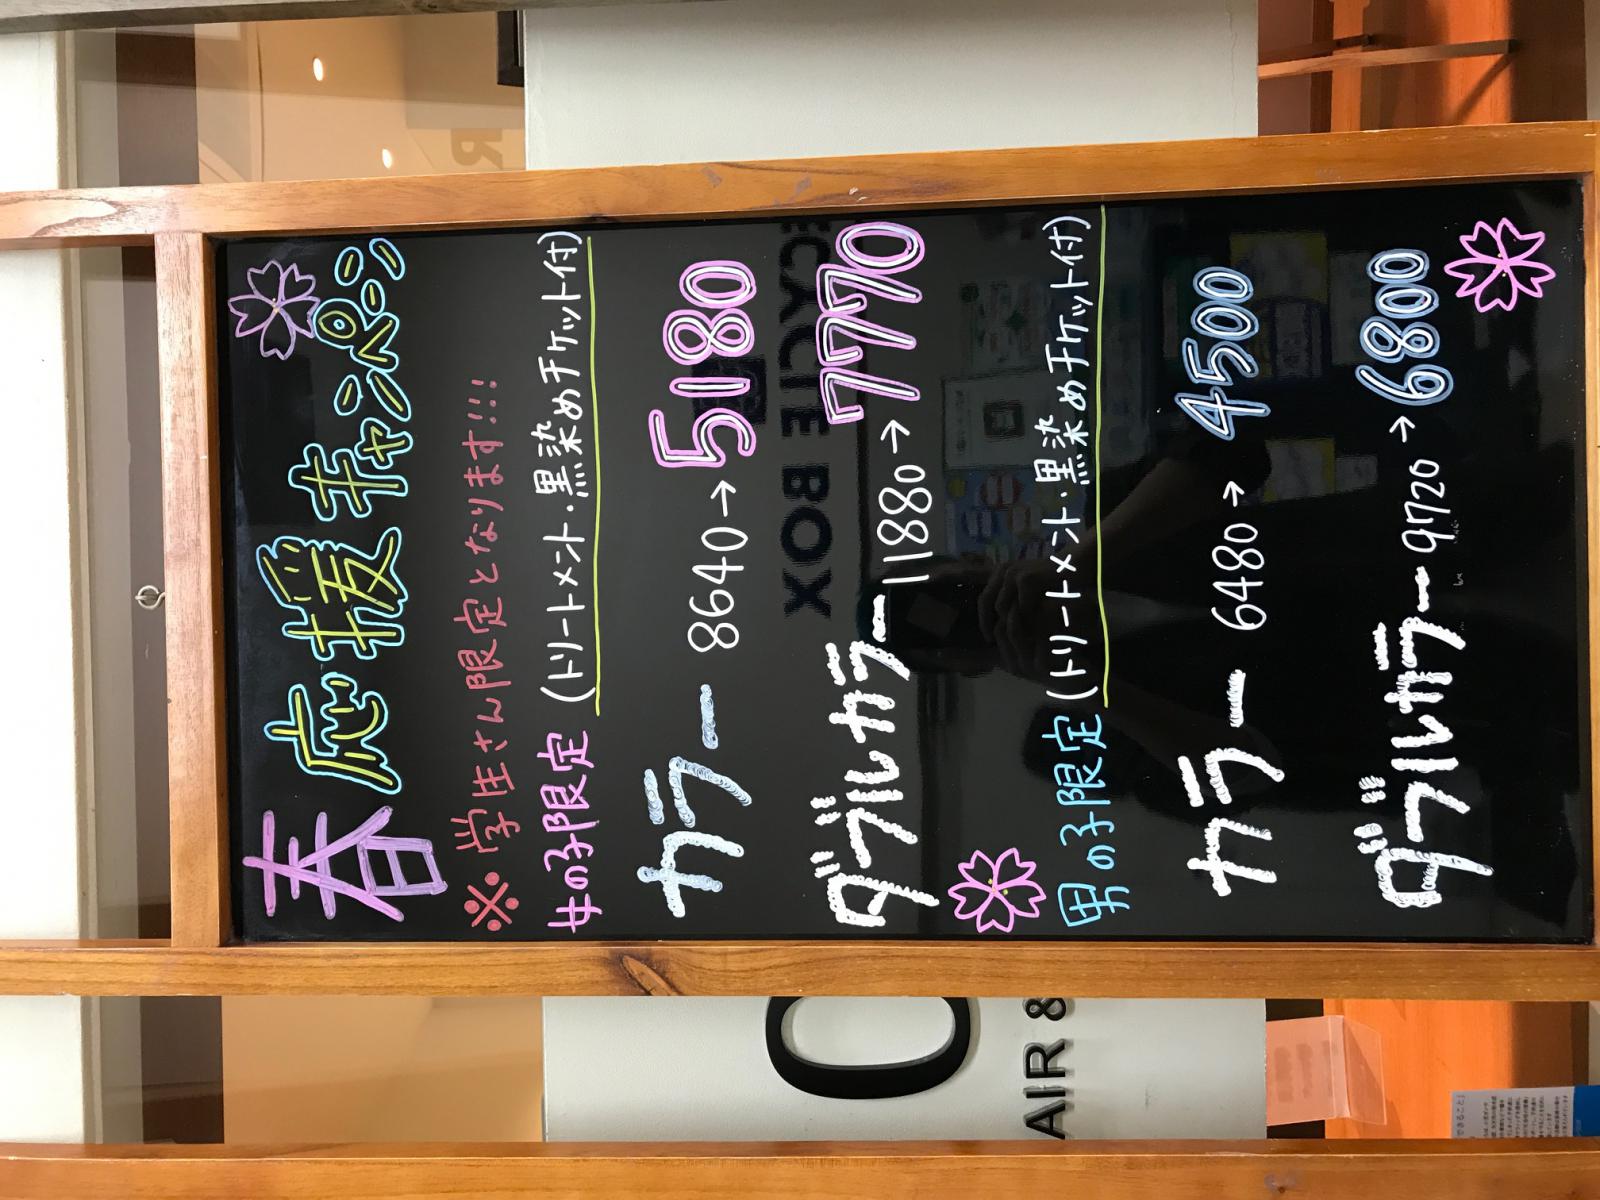 春応援キャンペーン
※学生さん限定となります!!!
女の子限定(トリートメント・黒染めチケット付)
カラー 8640→5180
ダブルカラー 11880→7770
男の子限定(トリートメント・黒染めチケット付)
カラー 6480→4500
ダブルカラー 9720→6800
ECYCLE BOX
O
AIR &
R
できること」